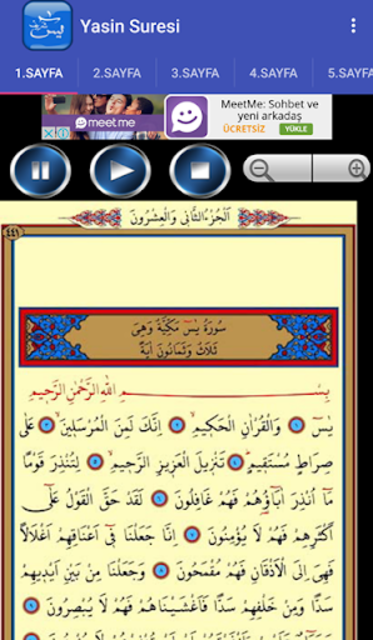 Yasin Suresi
1.SAYFA 2.SAYFA 3.SAYFA 4.SAYFA 5.SAYFA
meetme
MeetMe: Sohbet ve
yeni arkadaş
ÜCRETSİZ YÜKLE
اَلْجُزْءُ الثَّانِى وَالْعِشْرُونَ
٤٤١
سُورَةُ يٰسٓ مَكِّيَّةٌ وَهِىَ
ثَلَاثٌ وَثَمَانُونَ اٰيَةً
بِسْمِ اللّٰهِ الرَّحْمٰنِ الرَّحِيمِ
يٰسٓ ١ وَالْقُرْاٰنِ الْحَكِيمِ ٢ اِنَّكَ لَمِنَ الْمُرْسَلِينَ ٣ عَلٰى
صِرَاطٍ مُسْتَقِيمٍ ٤ تَنْزِيلَ الْعَزِيزِ الرَّحِيمِ ٥ لِتُنْذِرَ قَوْمًا
مَٓا اُنْذِرَ اٰبَٓاؤُ۬هُمْ فَهُمْ غَافِلُونَ ٦ لَقَدْ حَقَّ الْقَوْلُ عَلٰٓى
اَكْثَرِهِمْ فَهُمْ لَا يُؤْمِنُونَ ٧ اِنَّا جَعَلْنَا فٓى اَعْنَاقِهِمْ اَغْلَالًا
فَهِىَ اِلَى الْاَذْقَانِ فَهُمْ مُقْمَحُونَ ٨ وَجَعَلْنَا مِنْ بَيْنِ اَيْدِيهِمْ
سَدًّا وَمِنْ خَلْفِهِمْ سَدًّا فَاَغْشَيْنَاهُمْ فَهُمْ لَا يُبْصِرُونَ ٩